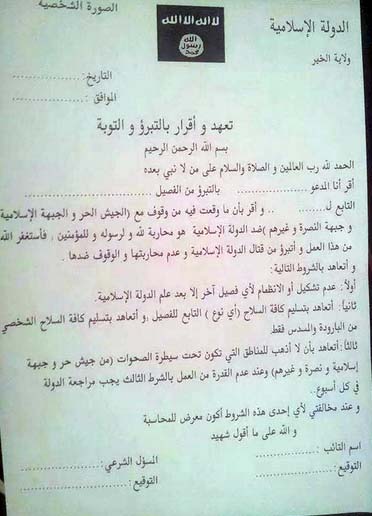 الصورة الشخصية
لا اله الا الله
الله
رسول
محمد
الدولة الإسلامية
ولاية الخير
التاريخ: ....................
الموافق: ....................
تعهد و أقرار بالتبرؤ و التوبة
بسم الله الرحمن الرحيم
الحمد لله رب العالمين و الصلاة والسلام على من لا نبي بعده
أقر أنا المدعو ........................ بالتبرؤ من الفصيل ........................
التابع لـ............ .. و أقر بأن ما وقعت فيه من وقوف مع (الجيش الحر و الجبهة الإسلامية
و جبهة النصرة و غيرهم )ضد الدولة الإسلامية هو محاربة لله و لرسوله و للمؤمنين , فأستغفر الله
من هذا العمل و أتبرأ من قتال الدولة الإسلامية و عدم محاربتها و الوقوف ضدها .
و أتعاهد بالشروط التالية:
أولاً: عدم تشكيل أو الانظمام لأي فصيل آخر إلا بعد علم الدولة الإسلامية.
ثانياً: أتعاهد بتسليم كافة السلاح (أي نوع ) التابع للفصيل ,و أتعاهد بتسليم كافة السلاح الشخصي
من البارودة والمسدس فقط
ثالثاً:أتعاهد بأن لا أذهب للمناطق التي تكون تحت سيطرة الصحوات (من جيش حر و جبهة
إسلامية و نصرة و غيرهم) وعند عدم القدرة من العمل بالشرط الثالث يجب مراجعة الدولة
في كل أسبوع..
و عند مخالفتي لأي إحدى هذه الشروط أكون معرض للمحاسبة
و الله على ما أقول شهيد
اسم التائب : ....................
المسؤل الشرعي : ....................
التوقيع: ....................
التوقيع : ....................